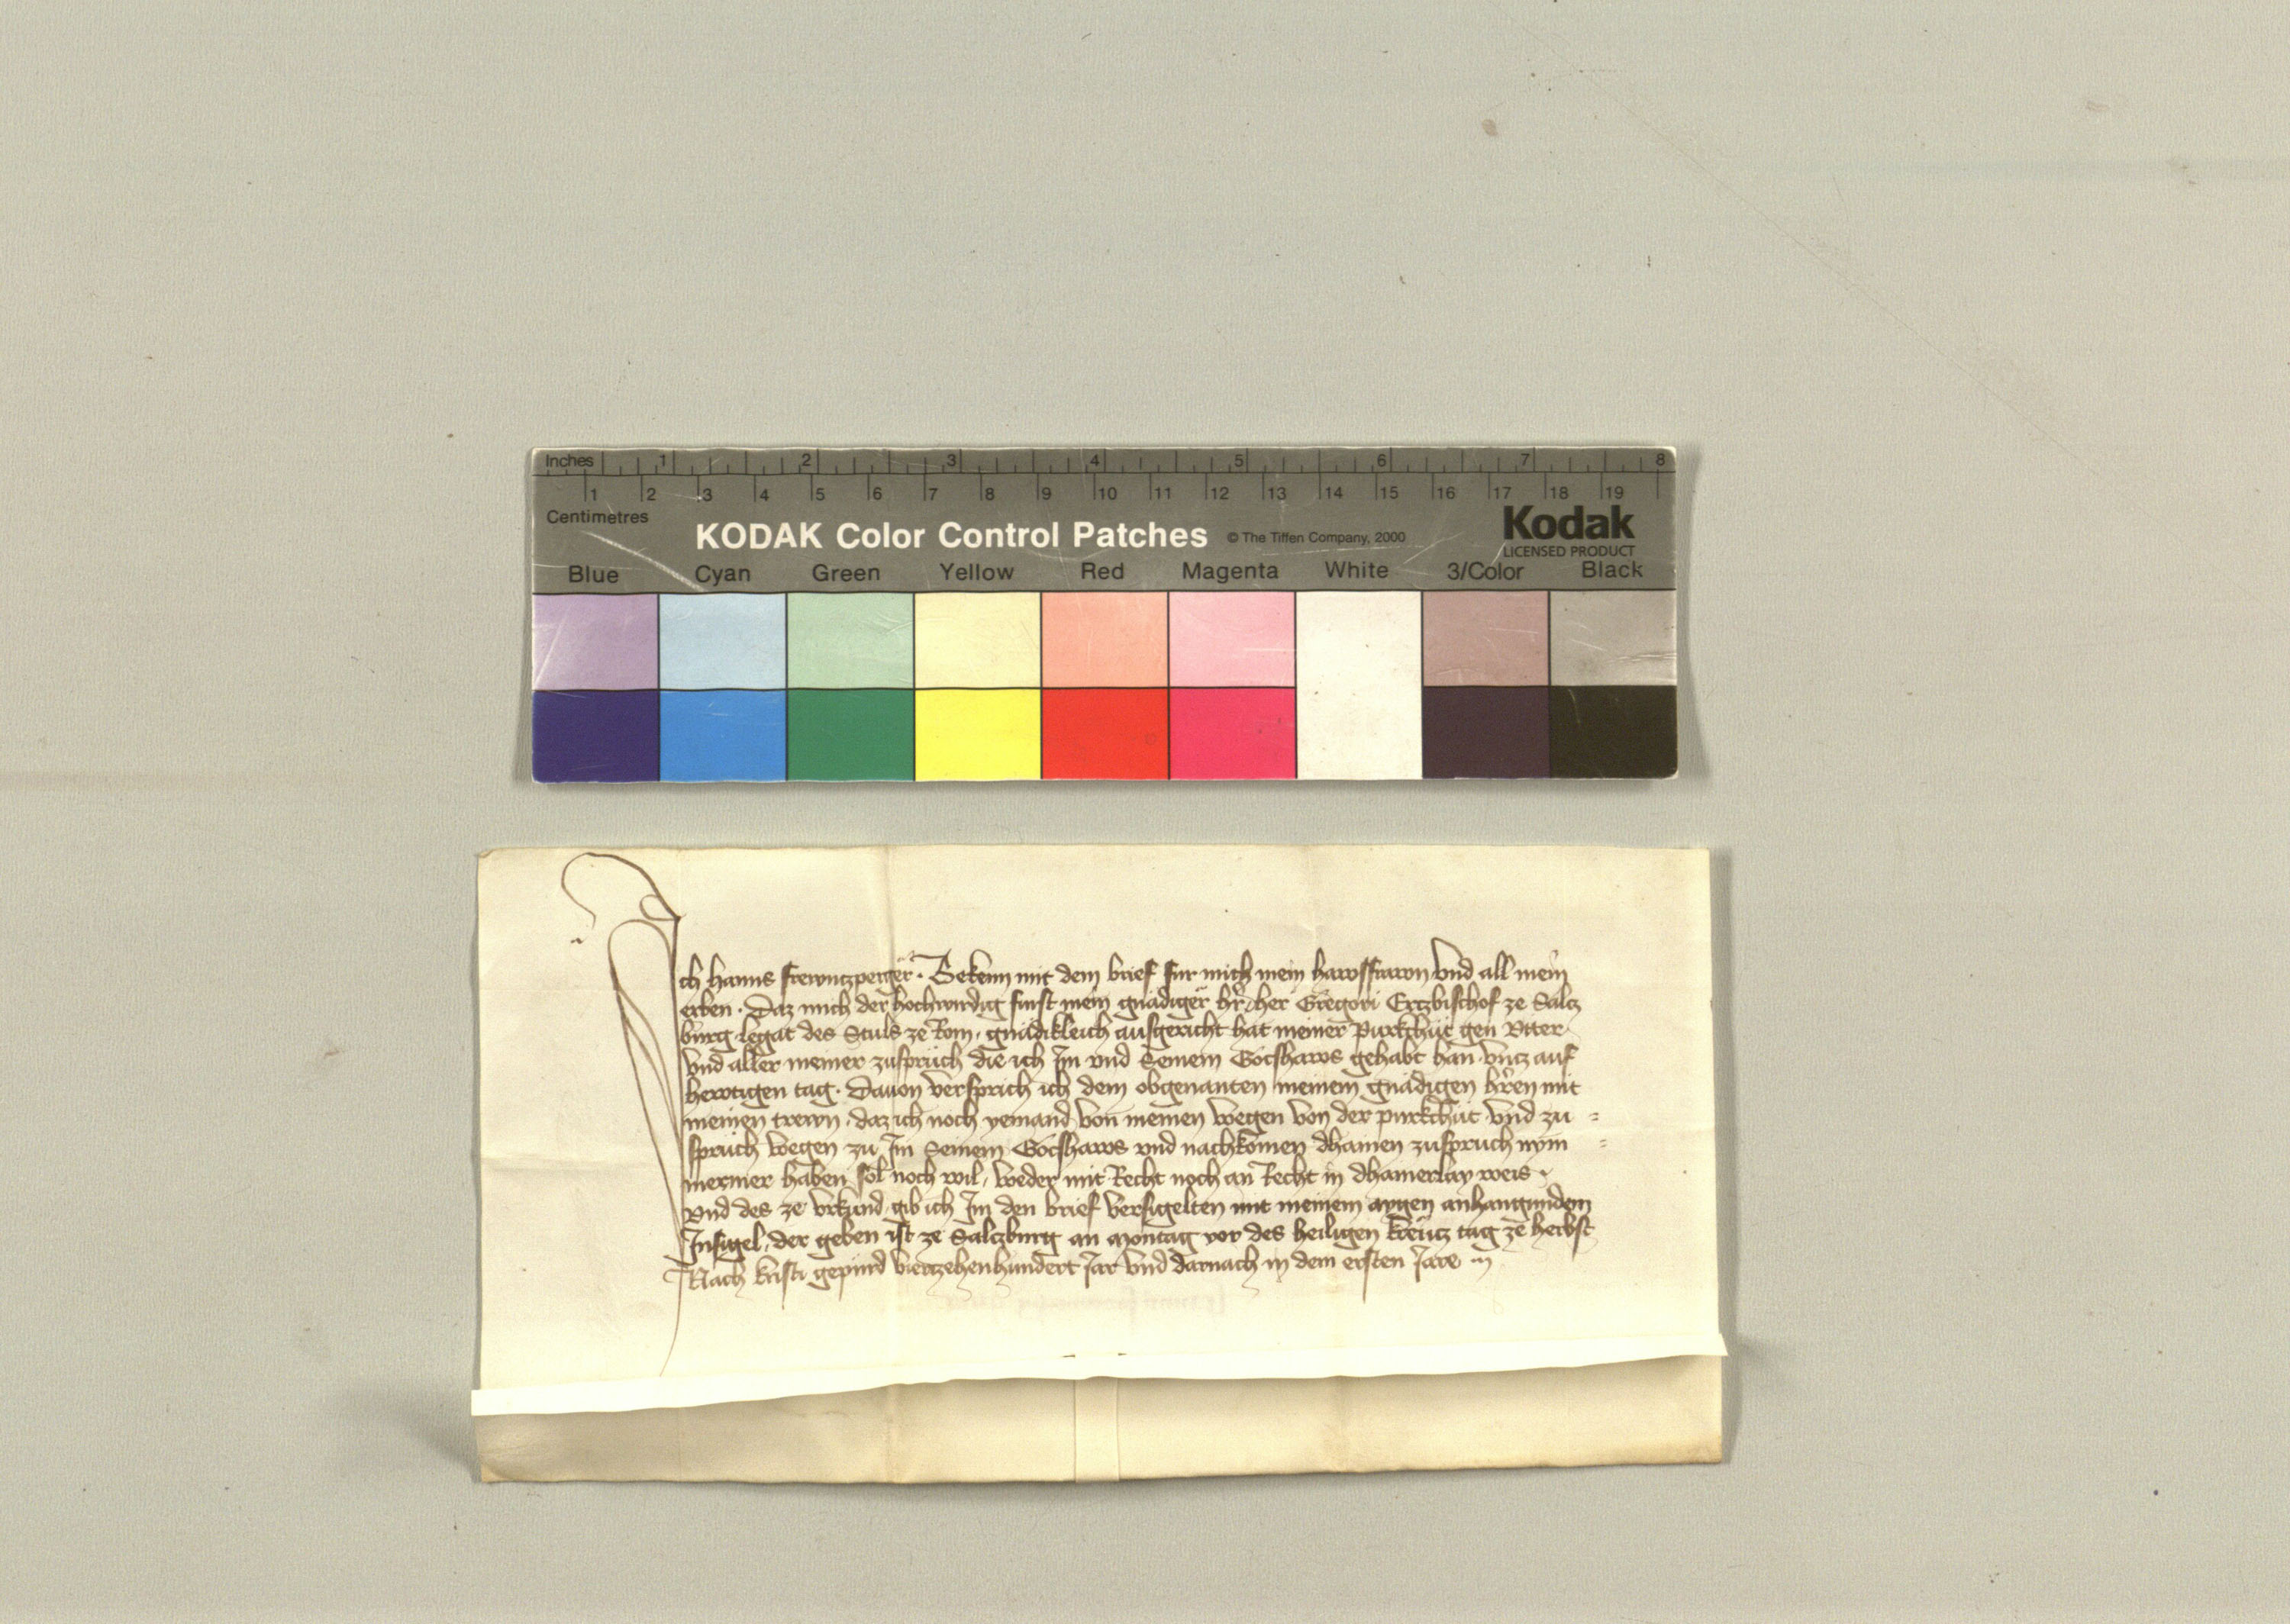 Inches 1 2 3 4 5 6 7 8
1 2 3 4 5 6 7 8 9 10 11 12 13 14 15 16 17 18 19
Centimetres
KODAK Color Control Patches © The Tiffen Company, 2000 Kodak
LICENSED PRODUCT
Blue Cyan Green Yellow Red Magenta White 3/Color Black
Ich Hanns frewntzperger. Bekenn mit dem brief fur mich mein hawsfrawn vnd all mein
erben. Daz mich der hochwirdig furst mein gnädiger hr̄ her Gregori Ertzbischof ze Saltz
burg legat des Stuls ze Rom, gnädikleich ausgericht hat meiner purkhüt gen Ytter
vnd aller meiner zusprüch die ich Im vnd Seinem Gotshaws gehabt han vntz auf
hewtigen tag. Dauon versprich ich dem obgenanten meinem gnädigen hr̄en mit
meinen trewn, daz ich noch yemand von meinen wegen von der purkchüt vnd zu =
spruch wegen zu Im Seinem Gotshaws vnd nachkomen dhainen zuspruch nym =
mermer haben sol noch wil, weder mit Recht noch an Recht in dhainerlay weis.
Vnd des ze vrkund gib ich Im den brief versigelten mit meinem aygen anhangundem
Insigel, der geben ist ze Saltzburg an Montag vor des heiligen kreutz tag ze herbst
Nach kristi gepurd viertzehenhundert Jar vnd darnach in dem ersten Jare